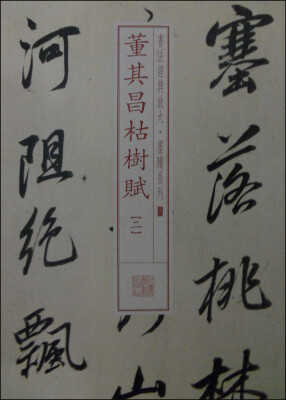 塞落桃林
山
河阻绝飄
書法經典放大・墨蹟系列
董其昌枯樹賦〔二〕